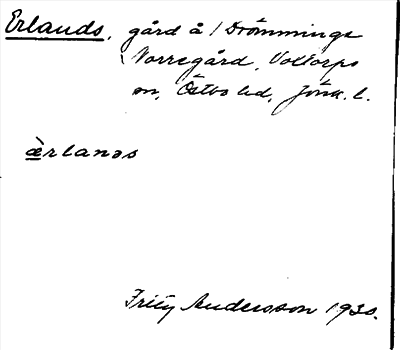 Erlands, gård å 1 Drömminge
Norregård, Voltorps
sn, Östbo hd, Jönk. l.
ærlanəs
Fritz Andersson 1930.